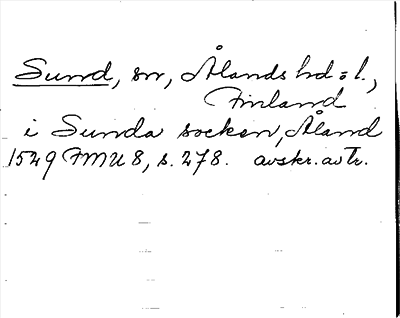 Sund, sn, Ålands hd o. l.,
Finland
i Sunda socken, Åland
1529 FMU 8, s. 278. avskr. av tr.